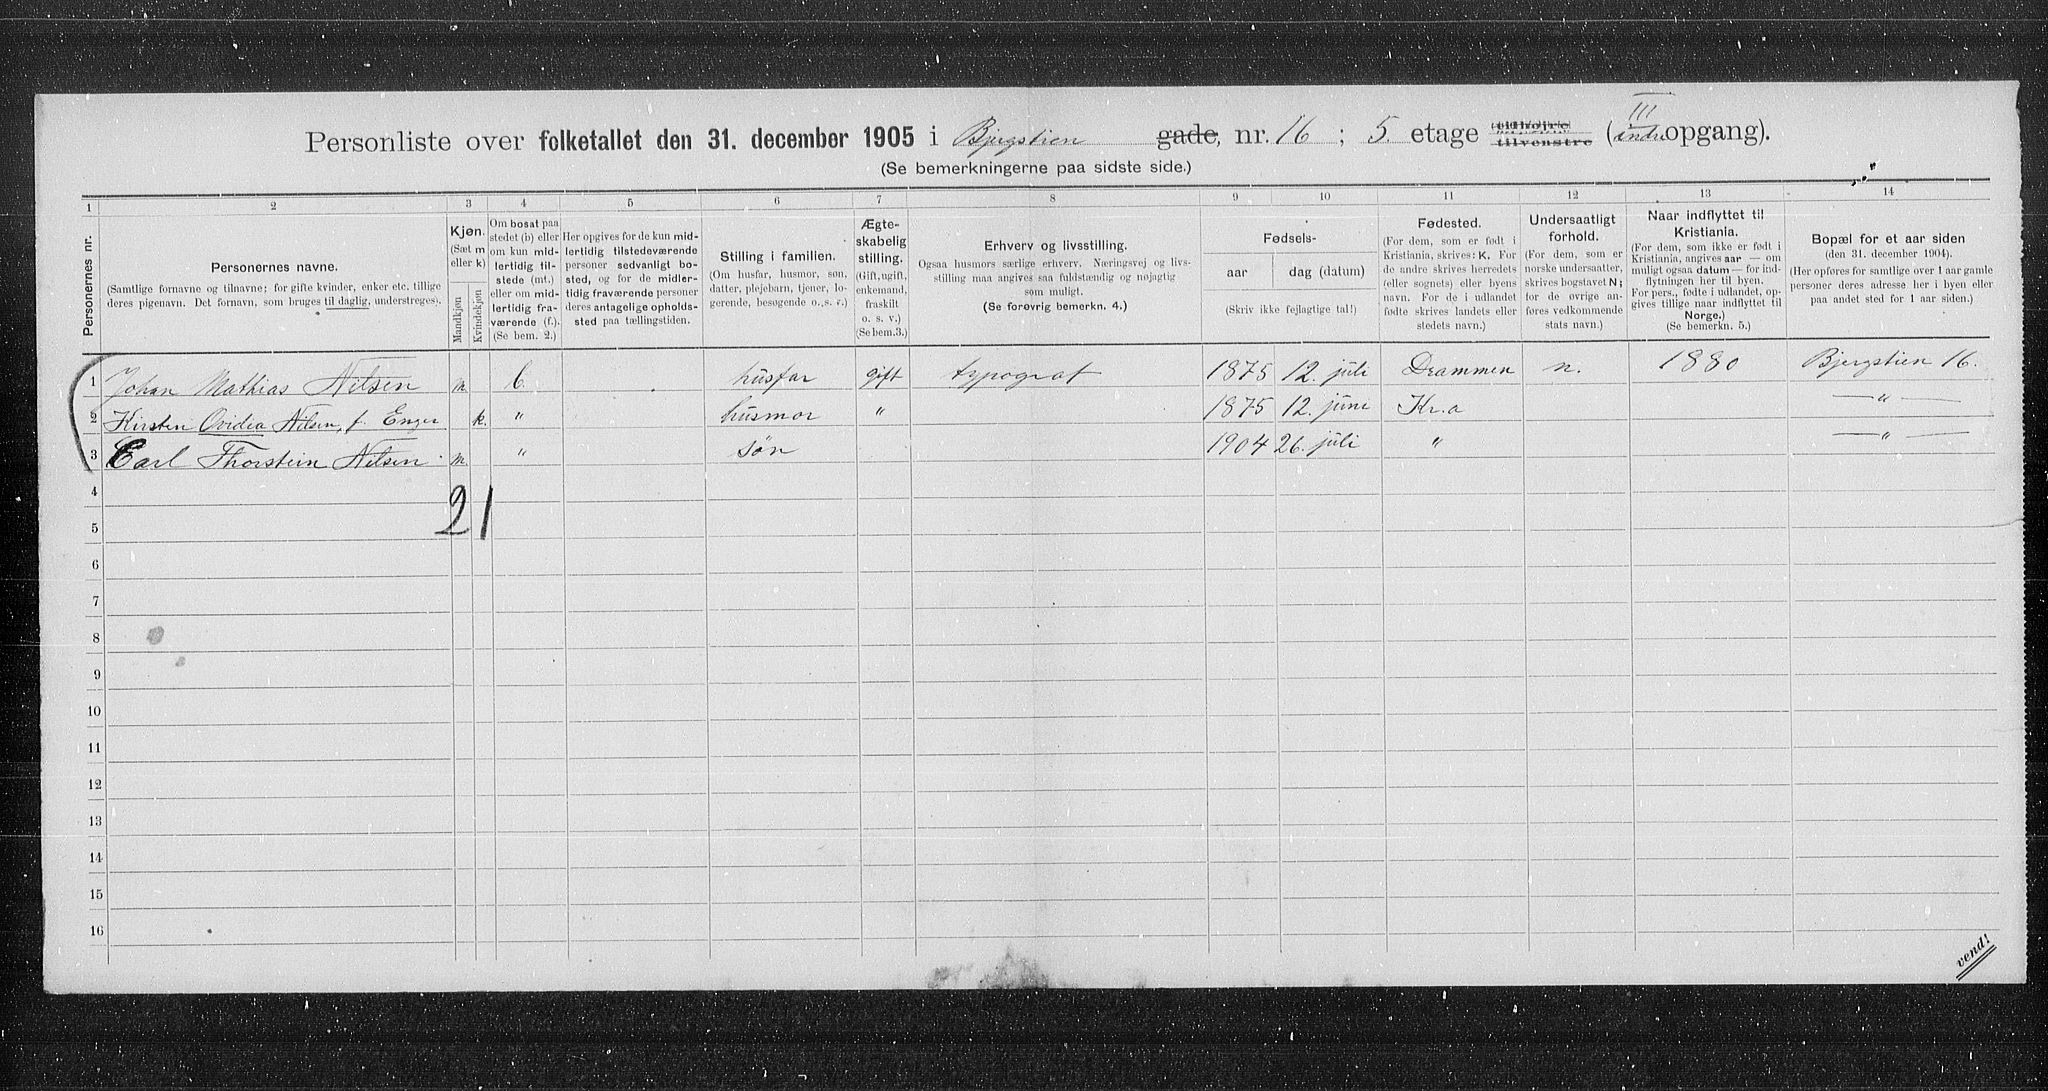 Personliste over folketallet den 31. december 1905 i Bjergstien gade, nr. 16 ; 5. etage tilhøjre tilvenstre ( III indre opgang).
(Se bemerkningerne paa sidste side.)
1 2 3 4 5 6 7 8 9 10 11 12 13 14
Personernes nr.
Personernes navne.
(Samtlige fornavne og tilnavne; for gifte kvinder, enker etc. tillige
deres pigenavn. Det fornavn, som bruges til daglig, understreges).
Kjøn.
(Sæt m
eller k)
Mandkjøn
Kvindekjøn
Om bosat paa
stedet (b) eller
om kun mid-
lertidig til-
stede (mt.)
eller om mid-
lertidig fra-
værende (f.).
(Se bem. 2.)
Her opgives for de kun mid-
lertidig tilstedeværende
personer sedvanligt bo-
sted, og for de midler-
tidig fraværende personer
deres antagelige opholds-
sted paa tællingstiden.
Stilling i familien.
(Om husfar, husmor, søn,
datter, plejebarn, tjener, lo-
gerende, besøgende o. s. v.)
Ægte-
skabelig
stilling.
(Gift, ugift,
enkemand,
fraskilt
o. s. v.)
(Se bem. 3.)
Erhverv og livsstilling.
Ogsaa husmors særlige erhverv. Næringsvej og livs-
stilling maa angives saa fuldstændig og nøjagtig
som muligt.
(Se forøvrig bemerkn. 4.)
Fødsels-
aar dag (datum)
(Skriv ikke fejlagtige tal!)
Fødested.
(For dem, som er født i
Kristiania, skrives: K. For
de andre skrives herredets
(eller sognets) eller byens
navn. For de i udlandet
fødte skrives landets eller
stedets navn.)
Undersaatligt
forhold.
(For dem, som er
norske undersaatter,
skrives bogstavet N;
for de øvrige an-
føres vedkommende
stats navn.)
Naar indflyttet til
Kristiania.
(For dem, som ikke er født i
Kristiania, angives aar — om
muligt ogsaa datum — for ind-
flytningen her til byen.
For pers., fødte i udlandet, op-
gives tillige naar indflyttet til
Norge.)
(Se bemerkn. 5.)
Bopæl for et aar siden
(den 31. december 1904).
(Her opføres for samtlige over 1 aar gamle
personer deres adresse her i byen eller
paa andet sted for 1 aar siden.)
1 Johan Mathias Nilsen m. b. husfar gift typograf 1875 12. juli Drammen n. 1880 Bjergstien 16.
2 Kirsten Ovidia Nilsen, f. Enger k. " husmor " 1875 12. juni Kr.a — " —
3 Carl Thorstein Nilsen. m. " søn 1904 26. juli " — " —
4
2 1
5
6
7
8
9
10
11
12
13
14
15
16
vend!